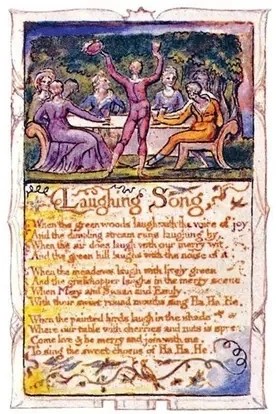 Laughing Song,
When the green woods laugh with the voice of joy
And the dimpling stream runs laughing by,
When the air does laugh with our merry wit,
And the green hill laughs with the noise of it.
When the meadows laugh with lively green
And the grasshopper laughs in the merry scene.
When Mary and Susan and Emily,
With their sweet round mouths sing Ha, Ha, He.
When the painted birds laugh in the shade
Where our table with cherries and nuts is spread
Come live & be merry and join with me,
To sing the sweet chorus of Ha, Ha, He.